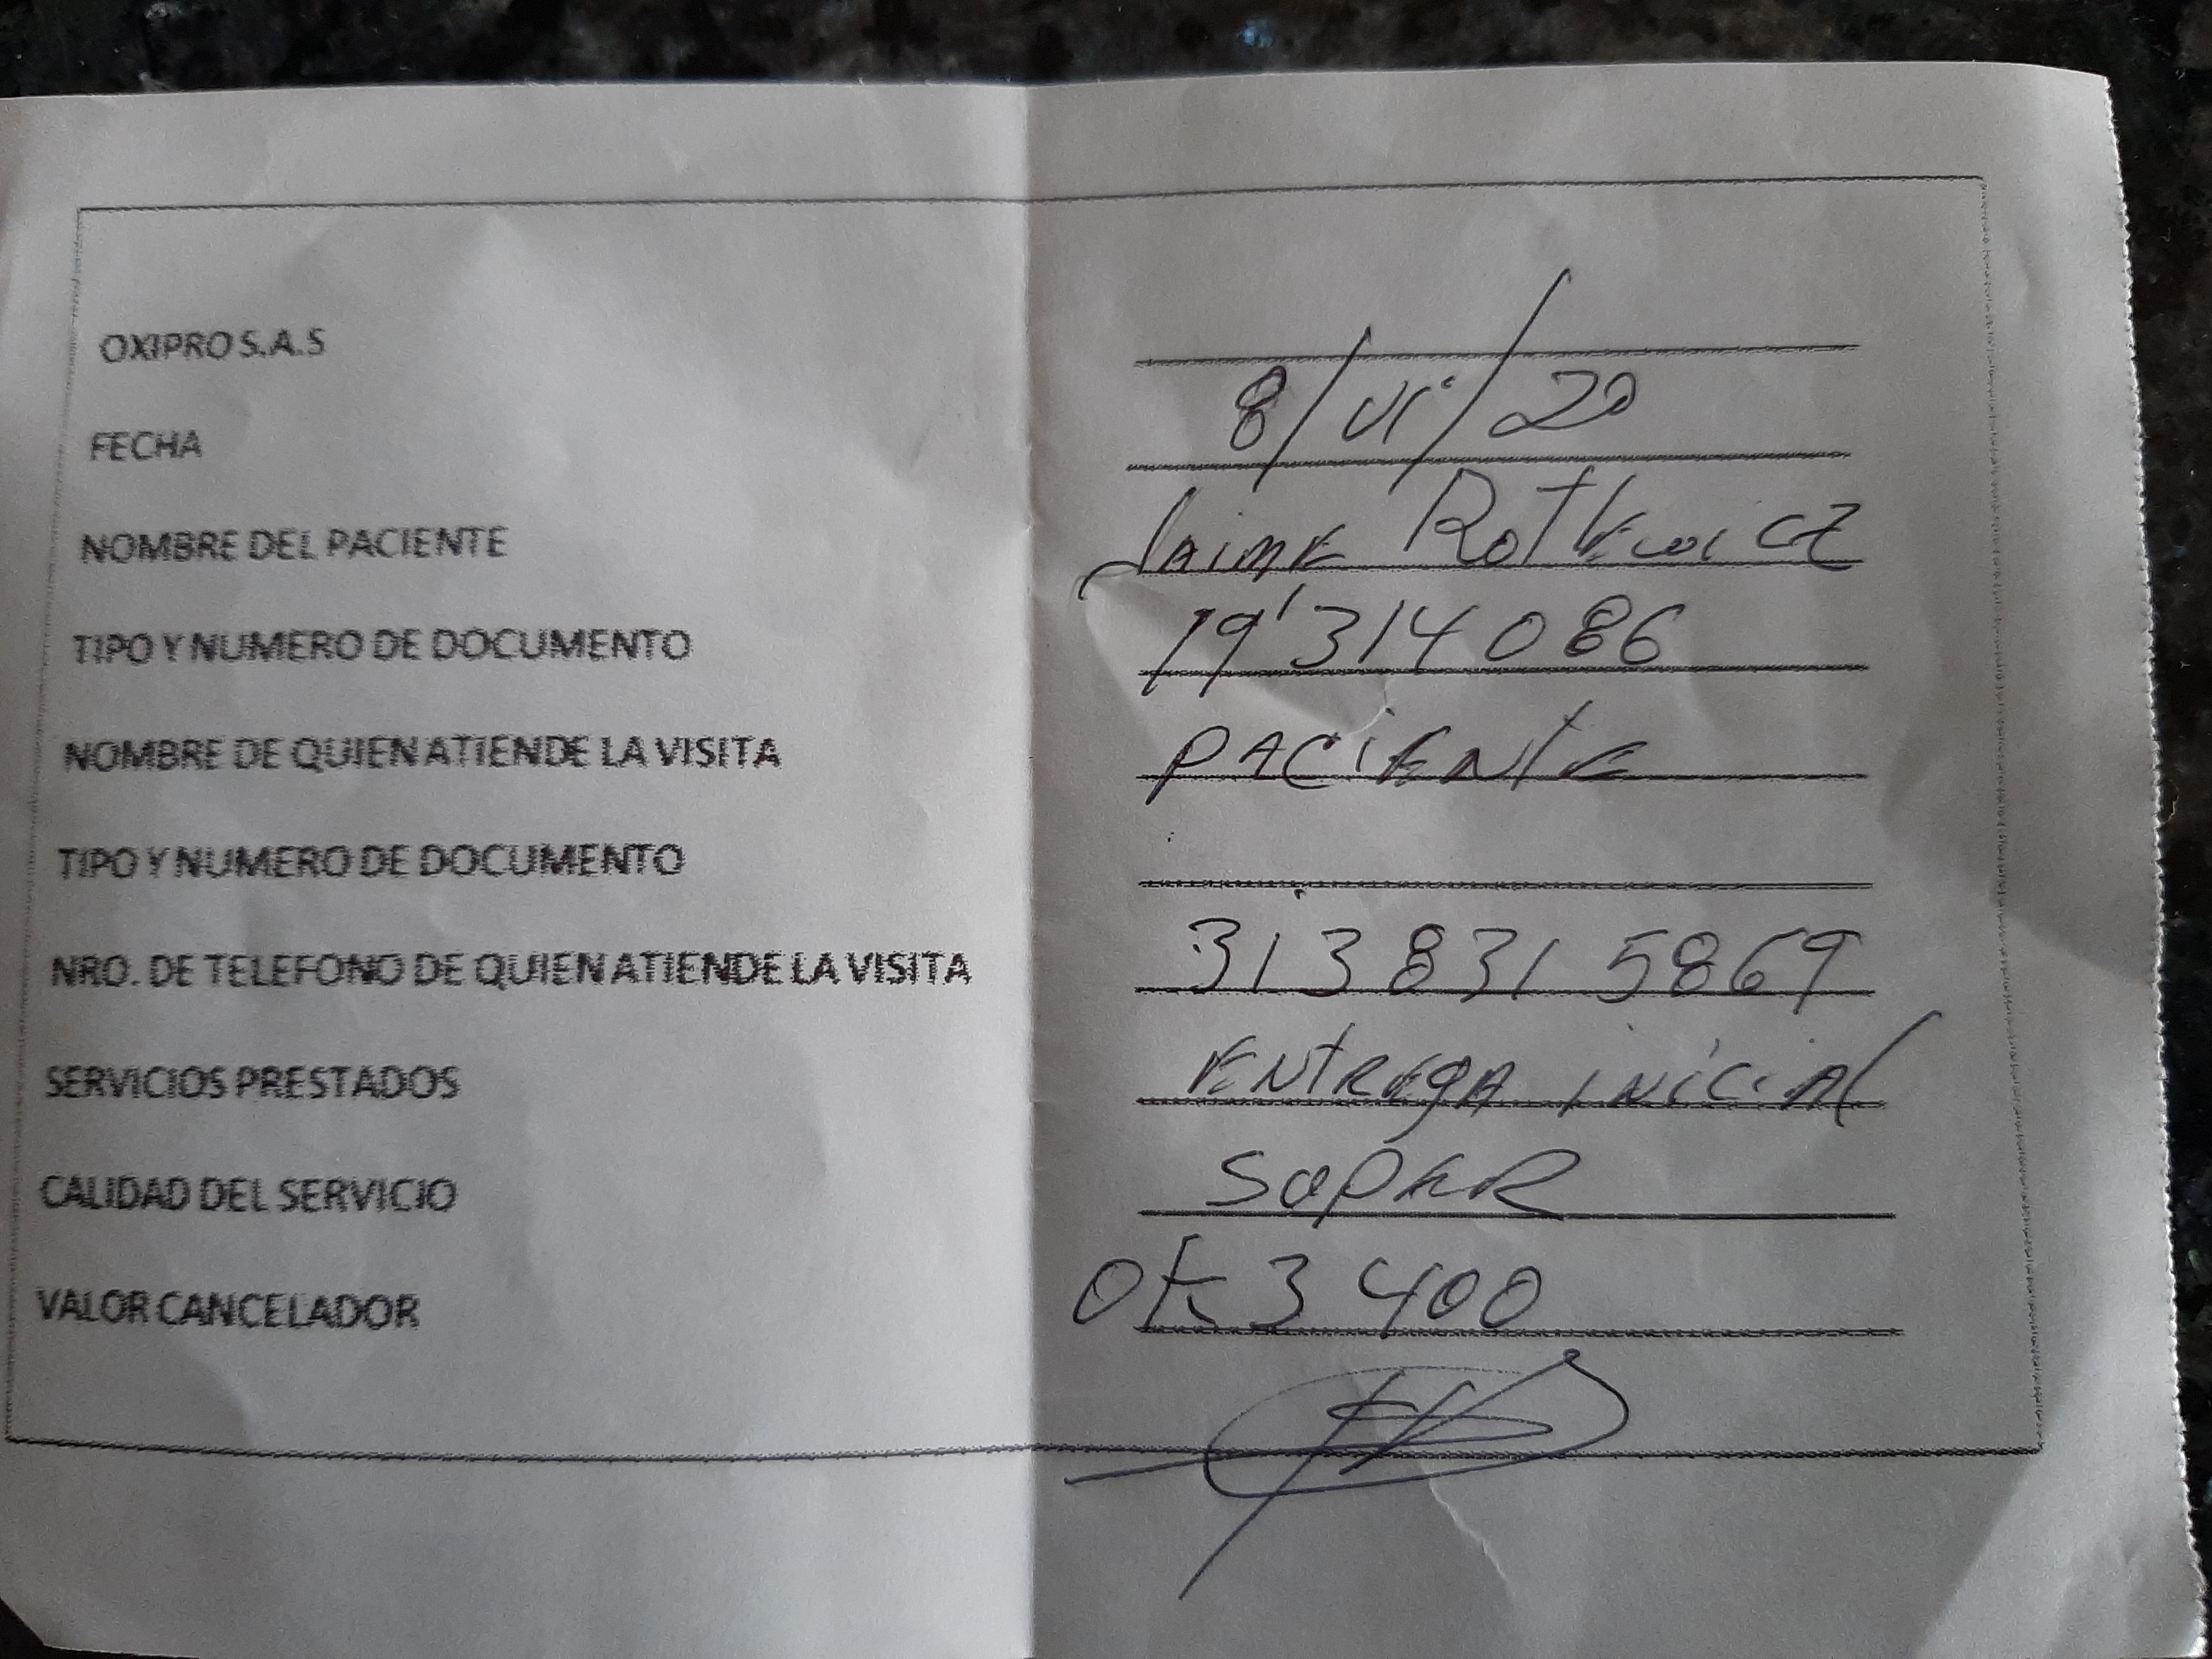 OXIPRO S.A.S
FECHA 8/VI/20
NOMBRE DEL PACIENTE Jaime Rotkewicz
TIPO Y NUMERO DE DOCUMENTO 19'314086
NOMBRE DE QUIEN ATIENDE LA VISITA PACIENTE
TIPO Y NUMERO DE DOCUMENTO
NRO. DE TELEFONO DE QUIEN ATIENDE LA VISITA 313 831 5869
SERVICIOS PRESTADOS ENTREGA INICIAL
CALIDAD DEL SERVICIO SUPER
VALOR CANCELADOR OK 3 400